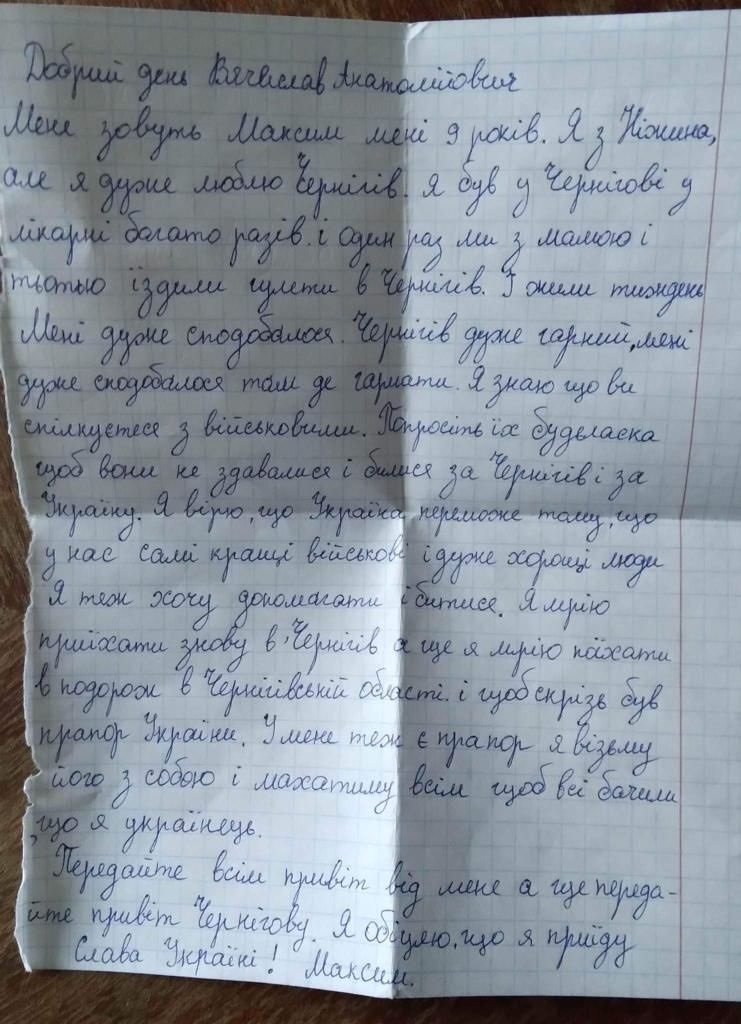 Добрий день Вячеслав Анатолійович
Мене зовуть Максим мені 9 років. Я з Ніжина,
але я дуже люблю Чернігів. Я був у Чернігові у
лікарні багато разів. і один раз ми з мамою і
тьотью їздили гуляти в Чернігів. І жили тиждень
Мені дуже сподобалося. Чернігів дуже гарний, мені
дуже сподобалося там де гармати. Я знаю що ви
спілкуєтеся з військовими. Попросіть їх будьласка
щоб вони не здавалися і билися за Чернігів і за
Україну. Я вірю, що Україна переможе тому, що
у нас самі кращі військові і дуже хороші люди
Я теж хочу допомагати і битися. Я мрію
приїхати знову в Чернігів а ще я мрію поїхати
в подорож в Чернігівській області. і щоб скрізь був
прапор України. У мене теж є прапор я візьму
його з собою і махатиму всім щоб всі бачили
, що я українець.
Передайте всім привіт від мене а ще переда-
йте привіт Чернігову. Я обіцяю, що я приїду
Слава Україні! Максим.